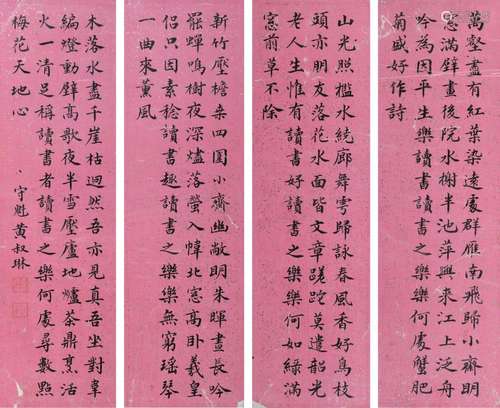 萬壑盡有紅葉染遠處群雁南飛歸小齋明
窓滿壁畫後院水榭半池萍興來江上泛舟
吟為因平生樂讀書讀書之樂何處蟹肥
菊盛好作詩
山光照檻水繞廊舞雩歸詠春風香好鳥枝
頭亦朋友落花水面皆文章蹉跎莫遣韶光
老人生惟有讀書好讀書之樂樂何如綠滿
窓前草不除
新竹壓檐桑四圍小齋幽敞明朱暉晝長吟
罷蟬鳴樹夜深燼落螢入幃北窓高卧羲皇
侶只因素稔讀書趣讀書之樂樂無窮瑶琴
一曲來薰風
木落水盡千崖枯迥然吾亦見真吾坐對韋
編燈動壁高歌夜半雪壓廬地爐茶鼎烹活
火一清足稱讀書者讀書之樂何處尋數點
梅花天地心
守魁黄叔琳